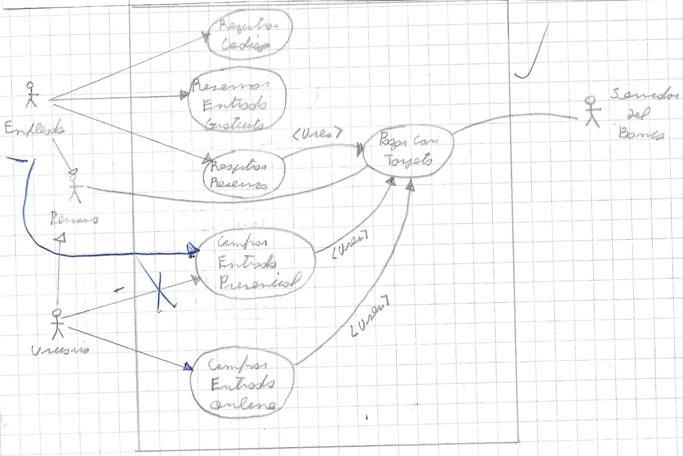 Registrar
Codigo
Reservar
Entrada
Gratuita
Empleado
Registrar
Reserva
<Uses>
Pagar Con
Tarjeta
Servidor
del
Banco
Persona
Comprar
Entrada
Presencial
<Uses>
Usuario
Comprar
Entrada
online
<Uses>